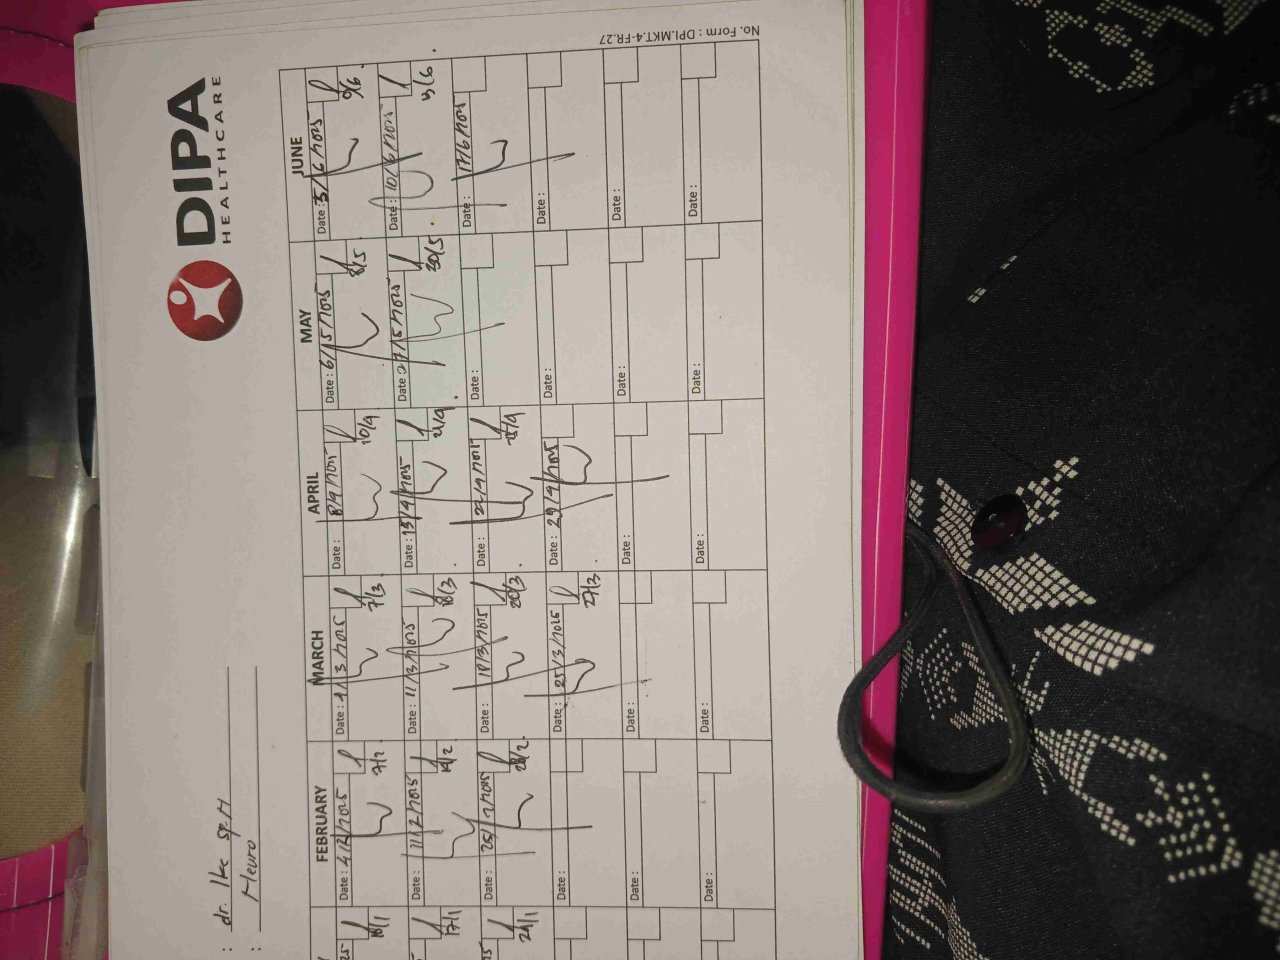 DIPA
HEALTHCARE
: dr. Ike SpM
:
FEBRUARY MARCH APRIL MAY JUNE
Date : 4/2/2025 7/2
Date : 11/2/2025 14/2
Date : 25/2/2025
Date :
Date :
Date :
Date : 7/3
Date : 11/3/2025
Date : 18/3/2025 20/3
Date : 25/3/2025 27/3
Date :
Date :
Date : 8/4/2025 10/4
Date : 15/4/2025
Date : 22/4/2025
Date : 29/4/2025
Date :
Date :
Date : 6/5/2025 8/5
Date : 27/5/2025 30/5
Date :
Date :
Date :
Date :
Date : 3/6/2025
Date : 10/6/2025
Date : 17/6/2025
Date :
Date :
Date :
18/1
17/1
24/1
No. Form : DPI.MKT.4-FR.27